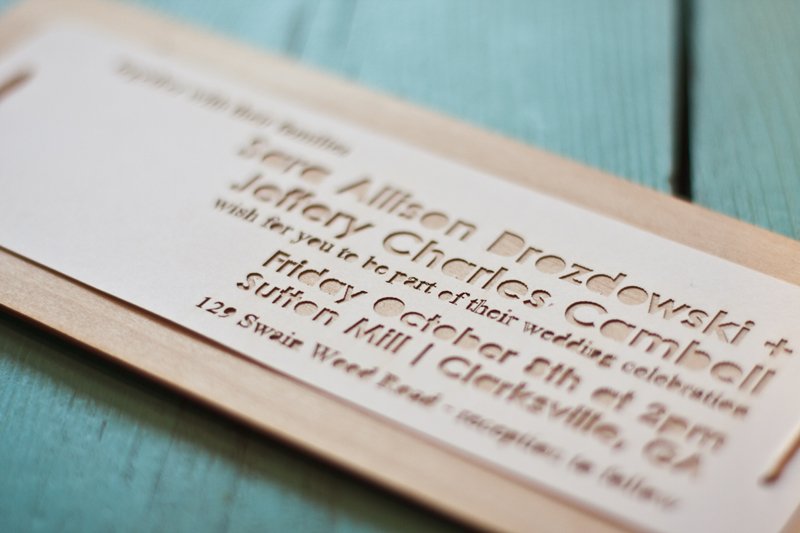 together with their families
Sara Allison Drozdowski +
Jeffery Charles Cambell
wish for you to be part of their wedding celebration
Friday October 8th at 2pm
Sutton Mill | Clarksville, GA
129 Swain Weed Road - reception to follow